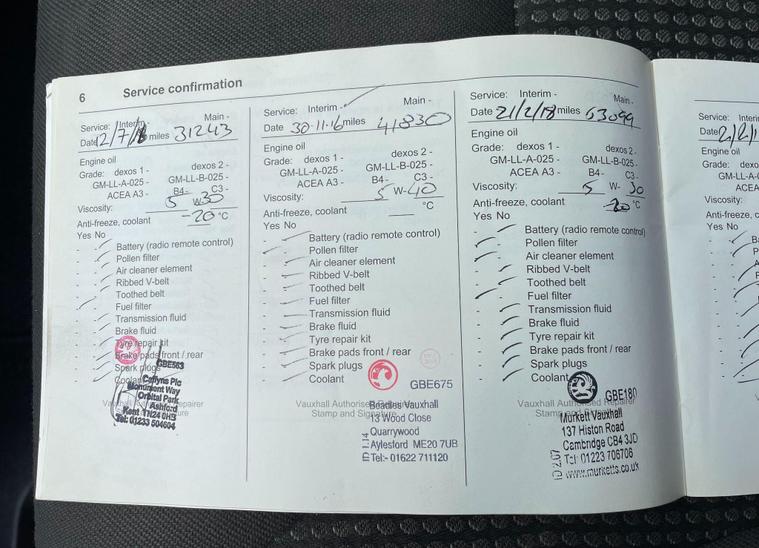 6 Service confirmation
Service: Interim -
Main -
Date 12/7/16 miles 31243
Engine oil
Grade: dexos 1 - dexos 2 -
GM-LL-A-025 - GM-LL-B-025 -
ACEA A3 - B4 - C3 -
Viscosity: 5 W-30
Anti-freeze, coolant -20 °C
Yes No
Battery (radio remote control)
Pollen filter
Air cleaner element
Ribbed V-belt
Toothed belt
Fuel filter
Transmission fluid
Brake fluid
Tyre repair kit
Brake pads front / rear
Spark plugs
GBE563
Coolant
Caffyns Plc
Monument Way
Orbital Park
Ashford
Kent TN24 0HB
Tel: 01233 504604
Service: Interim -
Main -
Date 30-11-16 miles 41830
Engine oil
Grade: dexos 1 - dexos 2 -
GM-LL-A-025 - GM-LL-B-025 -
ACEA A3 - B4 - C3 -
Viscosity: 5 W-40
Anti-freeze, coolant °C
Yes No
Battery (radio remote control)
Pollen filter
Air cleaner element
Ribbed V-belt
Toothed belt
Fuel filter
Transmission fluid
Brake fluid
Tyre repair kit
Brake pads front / rear
Spark plugs
Coolant
GBE675
Vauxhall Authorised Repairer
Stamp and Signature
Beadles Vauxhall
13 Wood Close
Quarrywood
Aylesford ME20 7UB
Tel:- 01622 711120
Service: Interim -
Main -
Date 21/2/18 miles 53099
Engine oil
Grade: dexos 1 - dexos 2 -
GM-LL-A-025 - GM-LL-B-025 -
ACEA A3 - B4 - C3 -
Viscosity: 5 W-30
Anti-freeze, coolant °C
Yes No
Battery (radio remote control)
Pollen filter
Air cleaner element
Ribbed V-belt
Toothed belt
Fuel filter
Transmission fluid
Brake fluid
Tyre repair kit
Brake pads front / rear
Spark plugs
Coolant
GBE180
Vauxhall Authorised Repairer
Murkett Vauxhall
137 Histon Road
Cambridge CB4 3JD
Tel: 01223 706706
www.murketts.co.uk
Service:
Date
Engine oil
Grade:
GM-LL-A
ACEA
Viscosity:
Anti-freeze,
Yes No